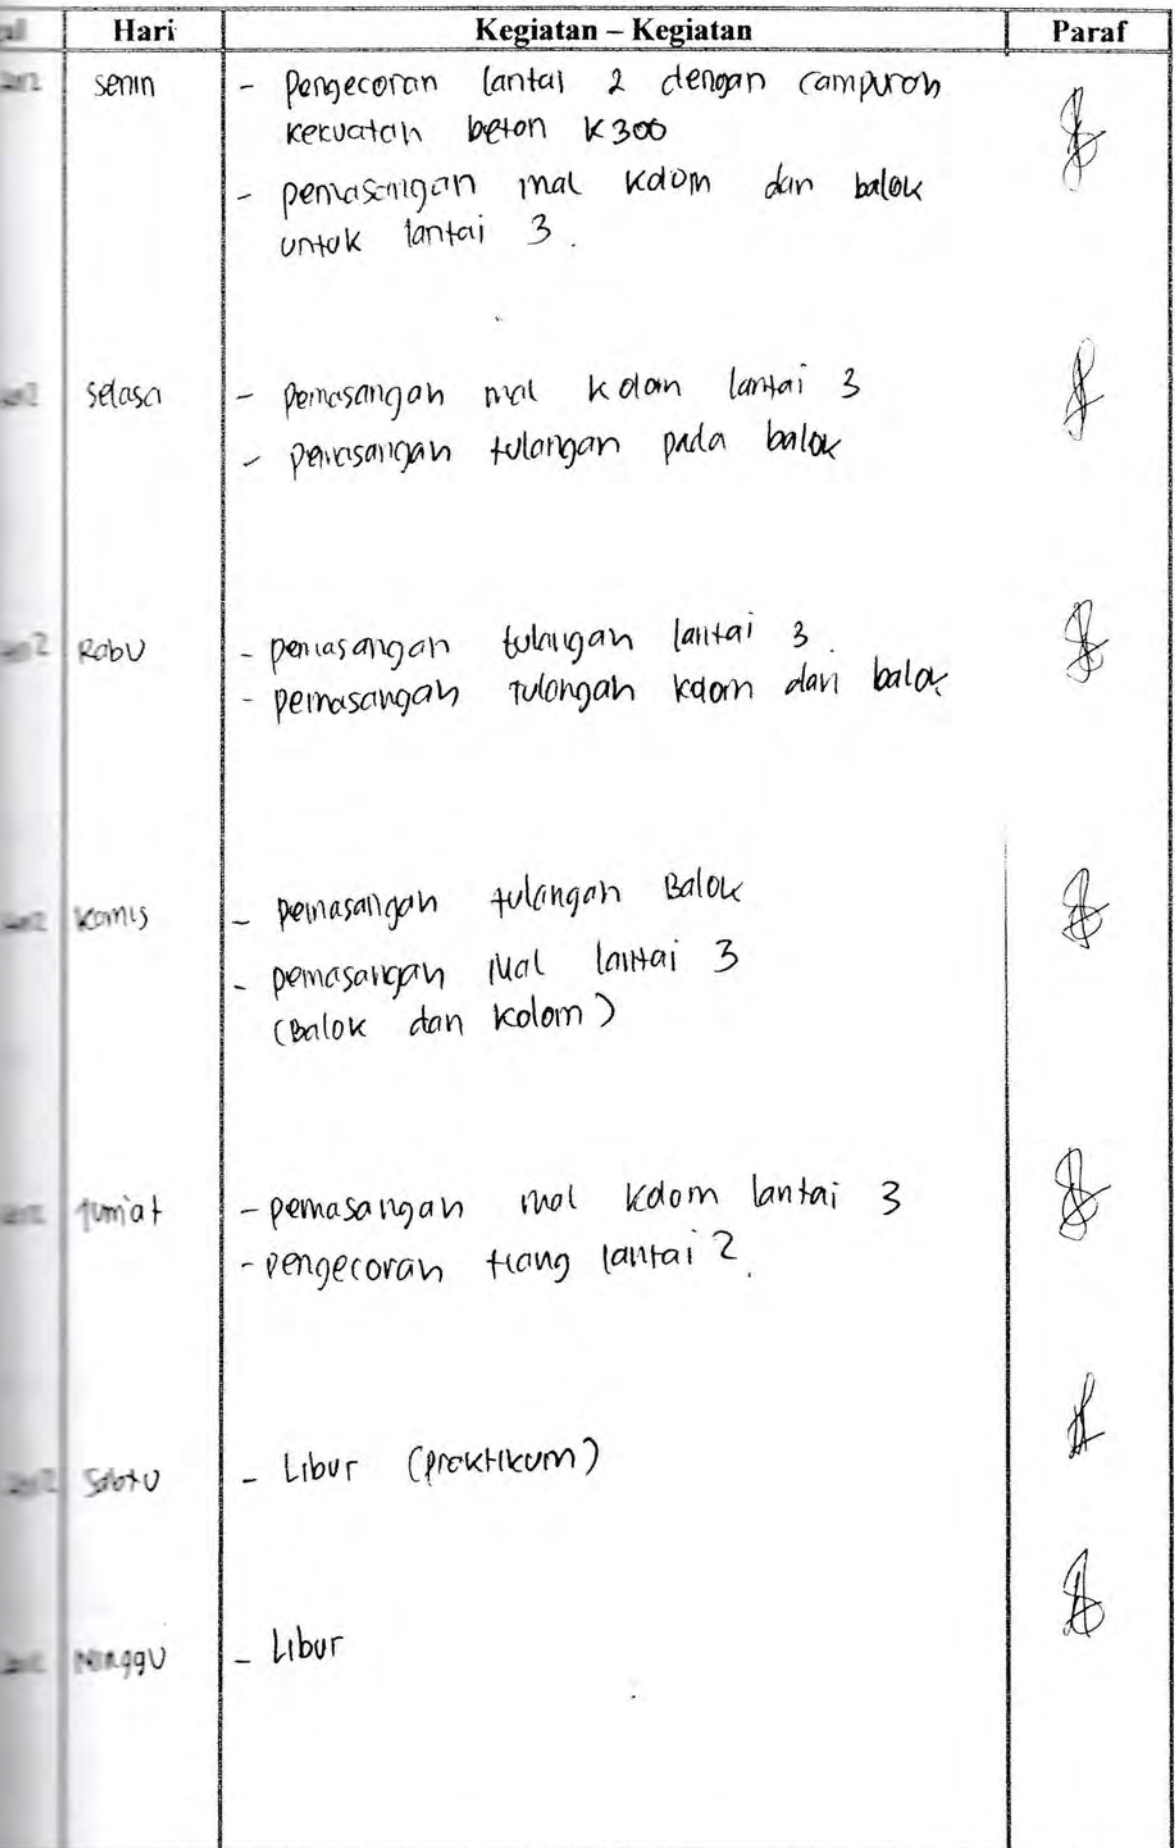 Hari Kegiatan – Kegiatan Paraf
senin - Pengecoran lantai 2 dengan campuran
kekuatan beton K300
- pemasangan mal kolom dan balok
untuk lantai 3.
selasa - Pemasangan mal kolom lantai 3
- pemasangan tulangan pada balok
Rabu - pemasangan tulangan lantai 3.
- pemasangan tulangan kolom dan balok
Kamis - pemasangan tulangan Balok
- pemasangan Mal lantai 3
(Balok dan kolom)
jum'at - pemasangan mal kolom lantai 3
- pengecoran tiang lantai 2.
Sabtu - Libur (praktikum)
Minggu - Libur